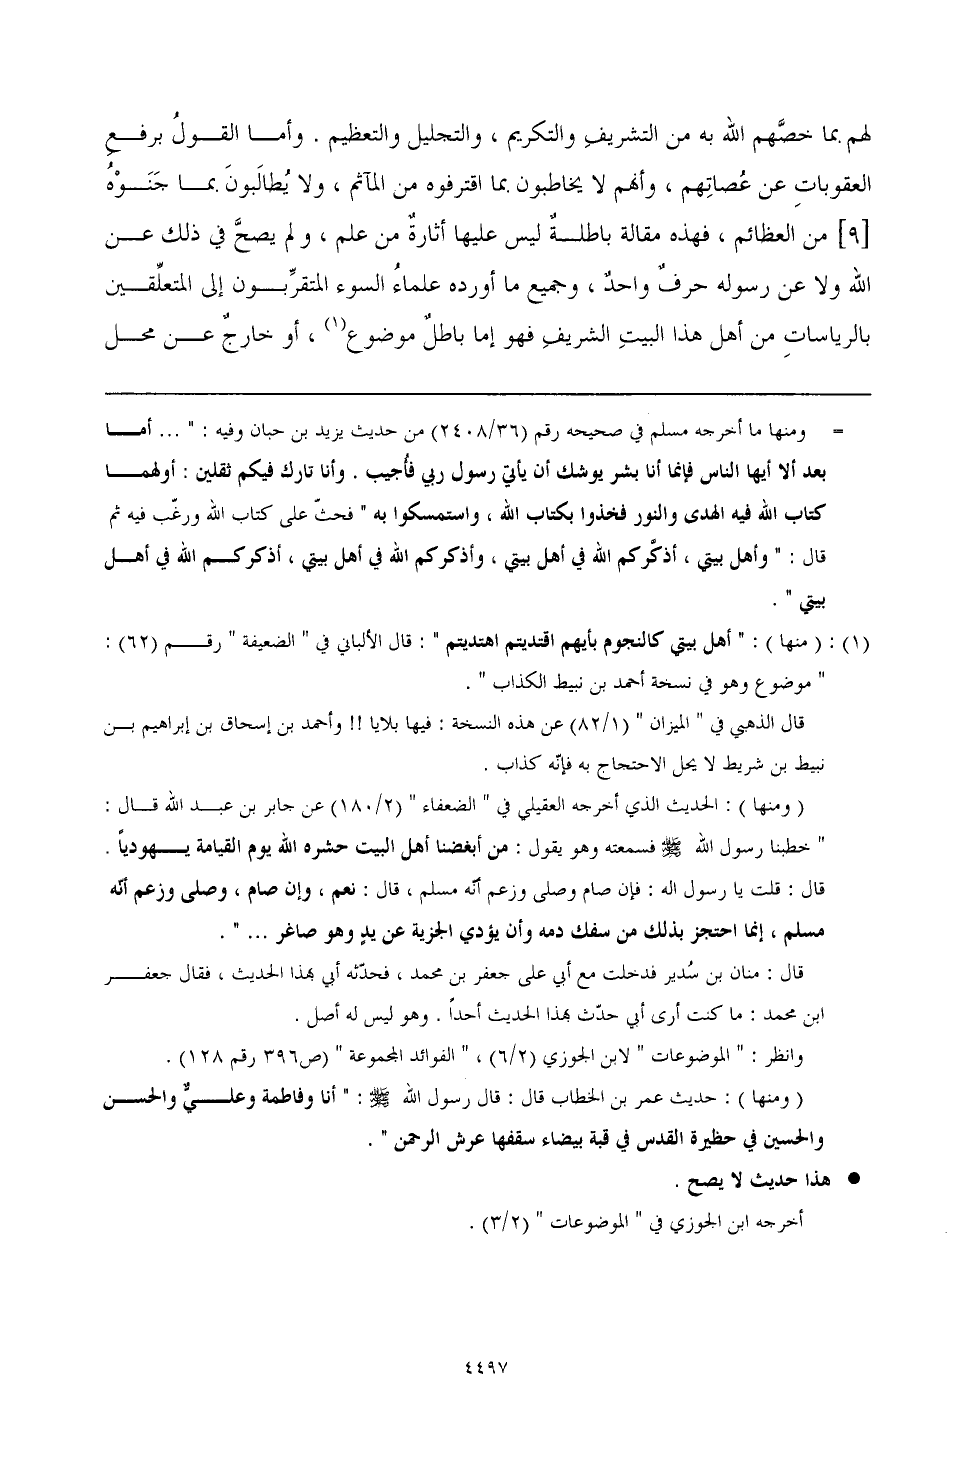 لهم بما خصَّهم الله به من التشريفِ والتكريم ، والتجليل والتعظيم . وأما القولُ برفعِ
العقوباتِ عن عُصاتِهم ، وأنهم لا يخاطبون بما اقترفوه من المآثم ، ولا يُطالَبونَ بما جَنَوْهُ
[٩] من العظائمِ ، فهذه مقالة باطلةٌ ليس عليها أثارةٌ من علم ، و لم يصحَّ في ذلك عن
الله ولا عن رسوله حرفٌ واحدٌ ، وجميع ما أورده علماءُ السوء المتقرِّبون إلى المتعلِّقين
بالرياساتِ من أهل هذا البيتِ الشريفِ فهو إما باطلٌ موضوع(١) ، أو خارجٌ عن محل
= ومنها ما أخرجه مسلم في صحيحه رقم (٢٤٠٨/٣٦) من حديث يزيد بن حبان وفيه : " ... أما
بعد ألا أيها الناس فإنما أنا بشر يوشك أن يأتي رسول ربي فأجيب . وأنا تارك فيكم ثقلين : أولهما
كتاب الله فيه الهدى والنور فخذوا بكتاب الله ، واستمسكوا به " فحثّ على كتاب الله ورغّب فيه ثم
قال : " وأهل بيتي ، أذكّركم الله في أهل بيتي ، وأذكركم الله في أهل بيتي ، أذكركم الله في أهل
بيتي " .
(١) : ( منها ) : " أهل بيتي كالنجوم بأيهم اقتديتم اهتديتم " : قال الألباني في " الضعيفة " رقم (٦٢) :
" موضوع وهو في نسخة أحمد بن نبيط الكذاب " .
قال الذهبي في " الميزان " (٨٢/١) عن هذه النسخة : فيها بلايا !! وأحمد بن إسحاق بن إبراهيم بن
نبيط بن شريط لا يحل الاحتجاج به فإنّه كذاب .
( ومنها ) : الحديث الذي أخرجه العقيلي في " الضعفاء " (١٨٠/٢) عن جابر بن عبد الله قال :
" خطبنا رسول الله ﷺ فسمعته وهو يقول : من أبغضنا أهل البيت حشره الله يوم القيامة يهودياً .
قال : قلت يا رسول اله : فإن صام وصلى وزعم أنّه مسلم ، قال : نعم ، وإن صام ، وصلى وزعم أنّه
مسلم ، إنما احتجز بذلك من سفك دمه وأن يؤدي الجزية عن يدٍ وهو صاغر ... " .
قال : منان بن سُدير فدخلت مع أبي على جعفر بن محمد ، فحدّثه أبي بهذا الحديث ، فقال جعفر
ابن محمد : ما كنت أرى أبي حدّث بهذا الحديث أحداً . وهو ليس له أصل .
وانظر : " الموضوعات " لابن الجوزي (٦/٢) ، " الفوائد المجموعة " (ص٣٩٦ رقم ١٢٨) .
( ومنها ) : حديث عمر بن الخطاب قال : قال رسول الله ﷺ : " أنا وفاطمة وعليٌّ والحسن
والحسين في حظيرة القدس في قبة بيضاء سقفها عرش الرحمن " .
● هذا حديث لا يصح .
أخرجه ابن الجوزي في " الموضوعات " (٣/٢) .
٤٤٩٧